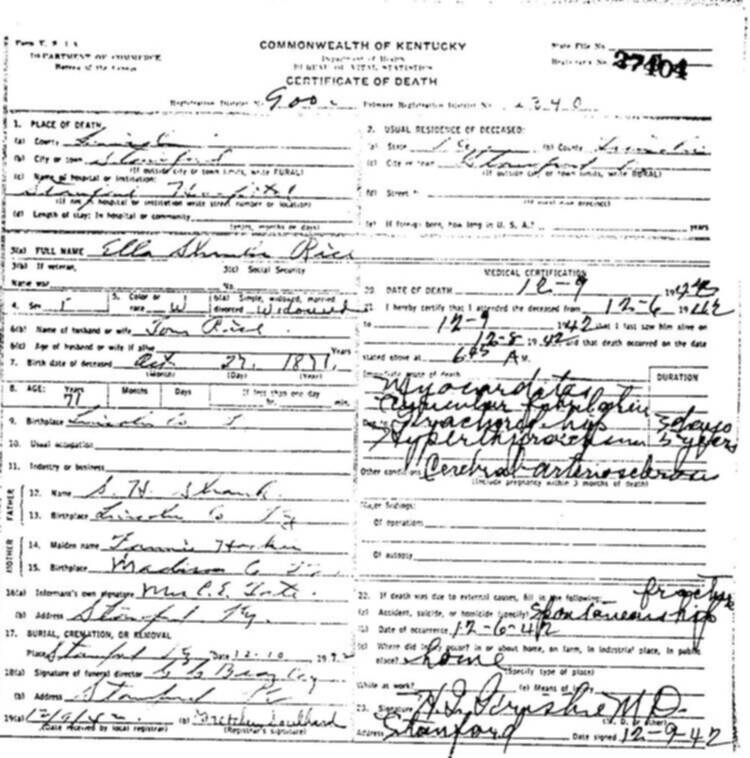 COMMONWEALTH OF KENTUCKY
Department of Health
BUREAU OF VITAL STATISTICS
CERTIFICATE OF DEATH
DEPARTMENT OF COMMERCE
Bureau of the Census
State File No.
Registrar's No. 27404
Registration District No. 900
Primary Registration District No. 2340
1. PLACE OF DEATH:
(a) County Lincoln
(b) City or town Stanford
(If outside city or town limits, write RURAL)
(c) Name of hospital or institution:
Stanford Hospital
(If not in hospital or institution write street number or location)
(d) Length of stay: In hospital or community
(years, months or days)
2. USUAL RESIDENCE OF DECEASED:
(a) State Ky (b) County Lincoln
(c) City or town Stanford
(If outside city or town limits, write RURAL)
(d) Street
(If rural give precinct)
(e) If foreign born, how long in U. S. A.? years
3(a) FULL NAME Ella Rice
3(b) If veteran,
Name war
3(c) Social Security
No.
4. Sex F
5. Color or race W
6(a) Single, widowed, married, divorced Widowed
6(b) Name of husband or wife Tom Rice
6(c) Age of husband or wife if alive Years
7. Birth date of deceased Oct 27, 1871
(Month) (Day) (Year)
8. AGE: Years 71 Months Days If less than one day
hr. min.
9. Birthplace Lincoln Co
10. Usual occupation
11. Industry or business
FATHER
12. Name S. H.
13. Birthplace Lincoln Co Ky
MOTHER
14. Maiden name Fannie
15. Birthplace Madison Co
16(a) Informant's own signature Mrs C. E. Tate
(b) Address Stanford Ky.
17. BURIAL, CREMATION, OR REMOVAL
Place Stanford Ky Date 12-10 1942
18(a) Signature of funeral director
(b) Address Stanford Ky
19(a) 12/9/42 (b) Gretchen
(Date received by local registrar) (Registrar's signature)
MEDICAL CERTIFICATION
20. DATE OF DEATH 12-9 1942
21. I hereby certify that I attended the deceased from 12-6 1942
to 12-9 1942 that I last saw him alive on
12-8 1942 and that death occurred on the date
stated above at 6 A M.
Immediate cause of death DURATION
Myocarditis
Auricular
Due to Fracture hip 3 days
Hyperthyroidism 5 years
Other conditions Cerebral arteriosclerosis
(Include pregnancy within 3 months of death)
Major findings:
Of operations
Of autopsy
22. If death was due to external causes, fill in the following: fracture
(a) Accident, suicide, or homicide (specify) Spontaneous hip
(b) Date of occurrence 12-6-42
(c) Where did injury occur? in or about home, on farm, in industrial place, in public place? home
(Specify type of place)
While at work? (e) Means of injury
23. Signature M.D.
(M. D. or other)
Address Stanford Date signed 12-9-42